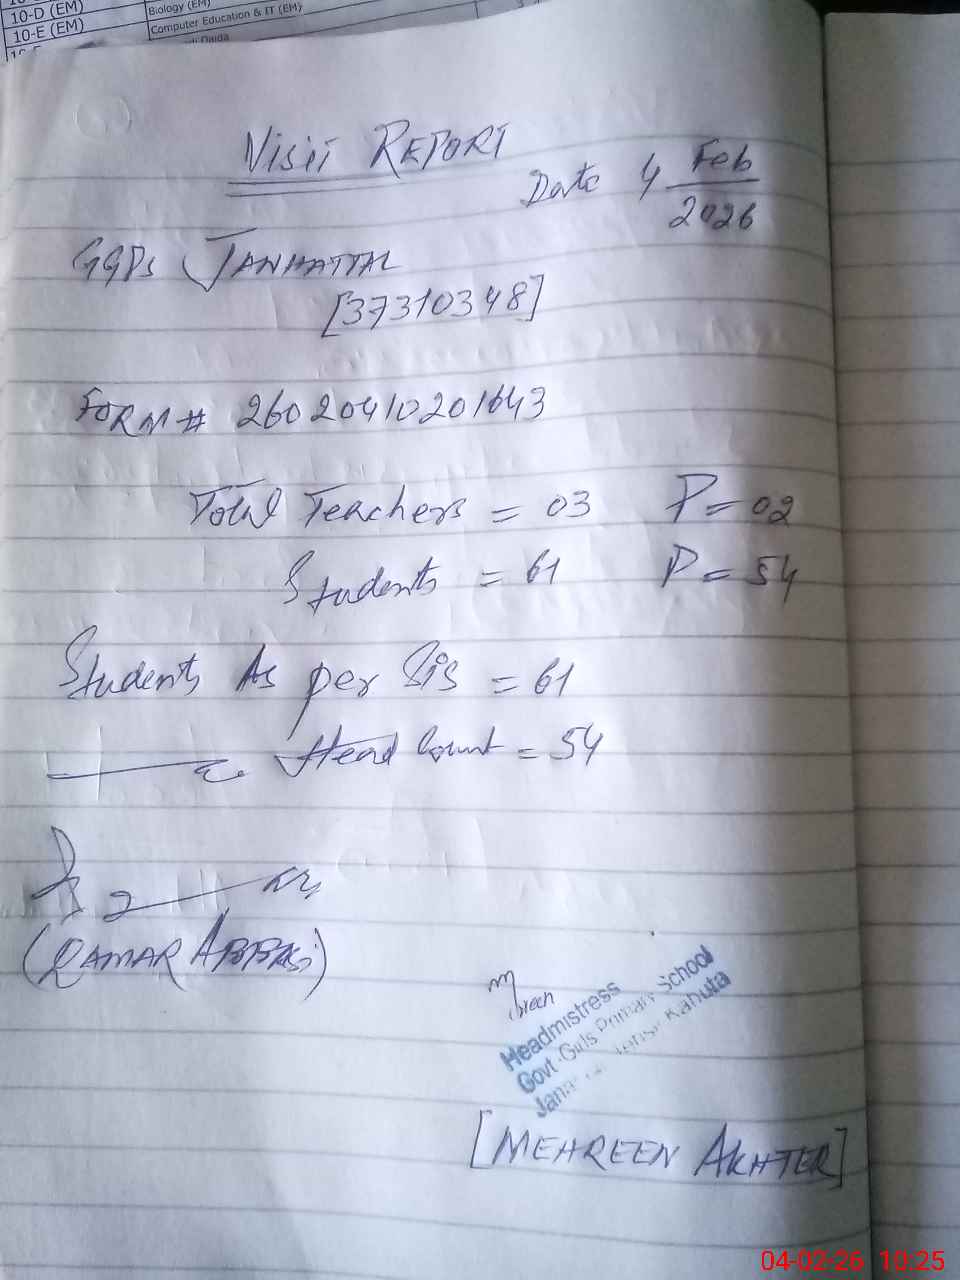 10-D (EM)
Biology (EM)
10-E (EM)
Computer Education & IT (EM)
VISIT REPORT
Date 4 Feb
2026
GGPS JANHATTAL
[37310348]
FORM # 26020410201643
Total Teachers = 03 P = 02
Students = 61 P = 54
Students As per Sis = 61
Head Count = 54
(QAMAR ABBASI)
Headmistress
Govt. Girls Primary School
Kahuta
[MEHREEN AKHTER]
04-02-26 10:25